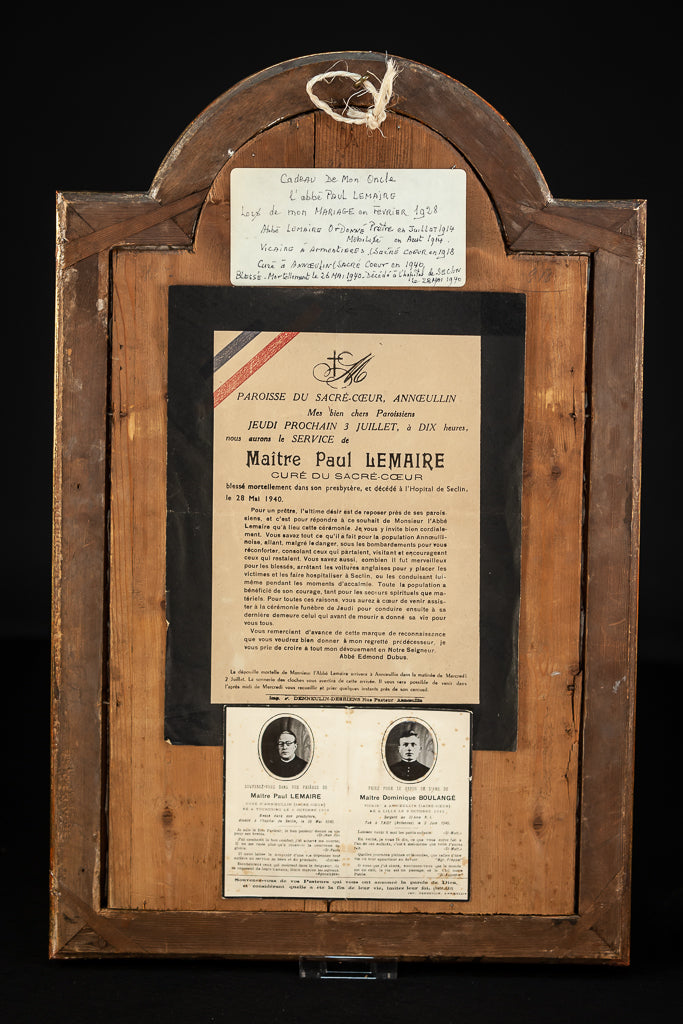 CADEAU DE MON ONCLE
l'abbé PAUL LEMAIRE
Lors de mon MARIAGE en FÉVRIER 1928
Abbé LEMAIRE ORDONNÉ Prêtre en Juillet 1914
Mobilisé en Aout 1914.
VICAIRE à Armentières (SACRÉ COEUR en 1918
Curé à ANNŒULIN (SACRÉ COEUR en 1940
BLESSÉ. Mortellement le 26 MAI 1940. Décédé à l'hôpital de SECLIN
le 28 MAI 1940
PAROISSE DU SACRÉ-CŒUR, ANNŒULLIN
Mes bien chers Paroissiens
JEUDI PROCHAIN 3 JUILLET, à DIX heures,
nous aurons le SERVICE de
Maître Paul LEMAIRE
CURÉ DU SACRÉ-CŒUR
blessé mortellement dans son presbysère, et décédé à l'Hopital de Seclin,
le 28 Mai 1940.
Pour un prêtre, l'ultime désir est de reposer près de ses parois
siens, et c'est pour répondre à ce souhait de Monsieur l'Abbé
Lemaire qu'a lieu cette cérémonie. Je vous y invite bien cordiale-
ment. Vous savez tout ce qu'il a fait pour la population Annœulli-
noise, allant, malgré le danger, sous les bombardements pour vous
réconforter, consolant ceux qui partaient, visitant et encourageant
ceux qui restaient. Vous savez aussi, combien il fut merveilleux
pour les blessés, arrêtant les voitures anglaises pour y placer les
victimes et les faire hospitaliser à Seclin, ou les conduisant lui-
même pendant les moments d'accalmie. Toute la population a
bénéficié de son courage, tant pour les secours spirituels que ma-
tériels. Pour toutes ces raisons, vous aurez à cœur de venir assis-
ter à la cérémonie funèbre de Jeudi pour conduire ensuite à sa
derniere demeure celui qui avant de mourir a donné sa vie pour
vous tous.
Vous remerciant d'avance de cette marque de reconnaissance
que vous voudrez bien donner à mon regretté prédécesseur, je
vous prie de croire à tout mon dévouement en Notre Seigneur.
Abbé Edmond Dubus.
La dépouille mortelle de Monsieur l'Abbé Lemaire arrivera à Annœullin dans la matinée de Mercredi
2 Juillet. La sonnerie des cloches vous avertira de cette arrivée. Il vous sera possible de venir dans
l'après midi de Mercredi vous recueillir et prier quelques instants près de son cercueil.
Imp. P. DENNEULIN-DESRIENS Rue Pasteur Annœullin
SOUVENEZ-VOUS DANS VOS PRIÈRES DE
Maître Paul LEMAIRE
CURÉ D'ANNŒULLIN (SACRÉ-CŒUR)
Blessé dans son presbytère,
décédé à l'Hôpital de Seclin, le 28 Mai 1940.
PRIEZ POUR LE REPOS DE L'AME DE
Maître Dominique BOULANGÉ
VICAIRE A ANNŒULLIN (SACRÉ-CŒUR)
Souvenez-vous de vos Pasteurs qui vous ont annoncé la parole de Dieu,
et considérant quelle a été la fin de leur vie, imitez leur foi.